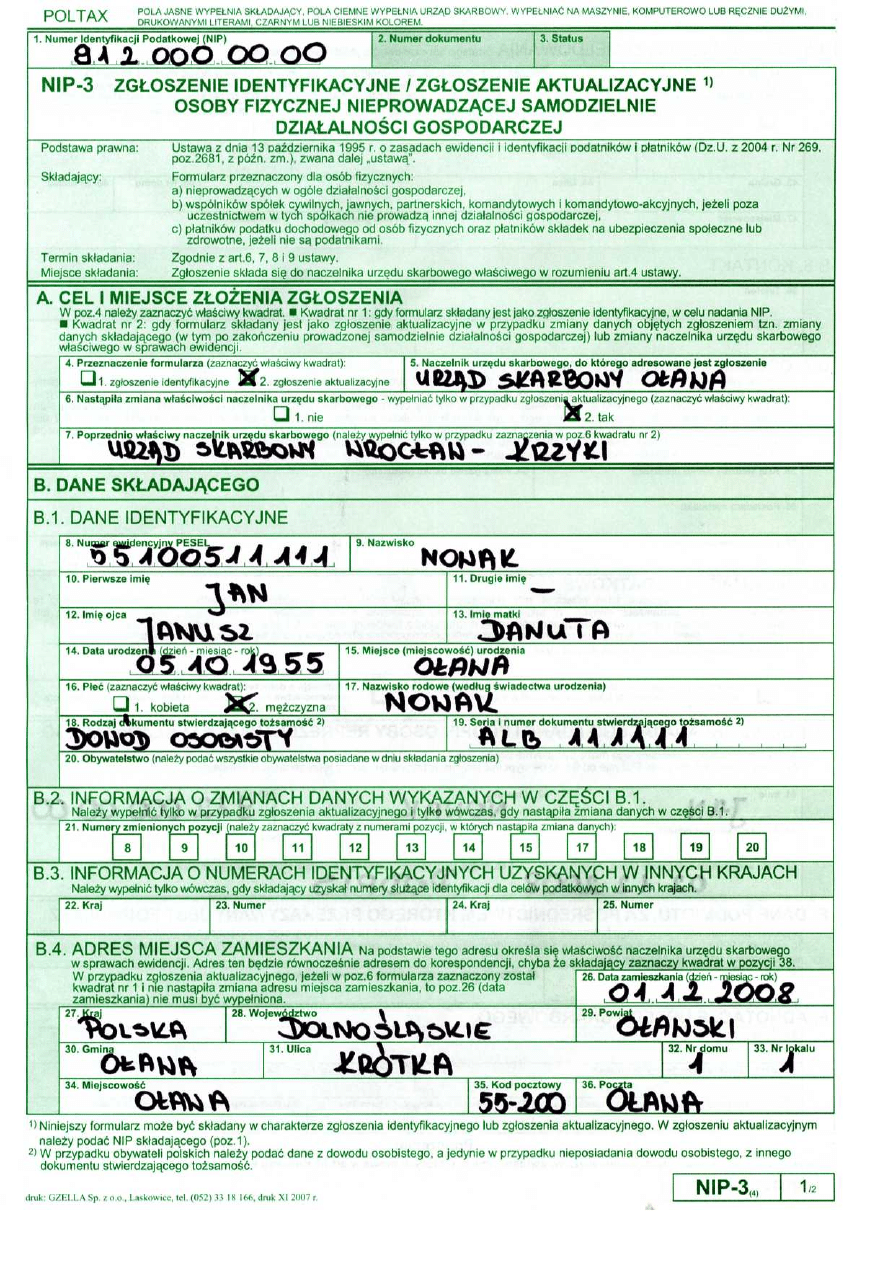 POLTAX
POLA JASNE WYPEŁNIA SKŁADAJĄCY, POLA CIEMNE WYPEŁNIA URZĄD SKARBOWY. WYPEŁNIAĆ NA MASZYNIE, KOMPUTEROWO LUB RĘCZNIE DUŻYMI,
DRUKOWANYMI LITERAMI, CZARNYM LUB NIEBIESKIM KOLOREM.
1. Numer Identyfikacji Podatkowej (NIP)
2. Numer dokumentu
3. Status
912 000 00 00
NIP-3 ZGŁOSZENIE IDENTYFIKACYJNE / ZGŁOSZENIE AKTUALIZACYJNE 1)
OSOBY FIZYCZNEJ NIEPROWADZĄCEJ SAMODZIELNIE
DZIAŁALNOŚCI GOSPODARCZEJ
Podstawa prawna: Ustawa z dnia 13 października 1995 r. o zasadach ewidencji i identyfikacji podatników i płatników (Dz.U. z 2004 r. Nr 269,
poz.2681, z późn. zm.), zwana dalej „ustawą".
Składający: Formularz przeznaczony dla osób fizycznych:
a) nieprowadzących w ogóle działalności gospodarczej,
b) wspólników spółek cywilnych, jawnych, partnerskich, komandytowych i komandytowo-akcyjnych, jeżeli poza
uczestnictwem w tych spółkach nie prowadzą innej działalności gospodarczej,
c) płatników podatku dochodowego od osób fizycznych oraz płatników składek na ubezpieczenia społeczne lub
zdrowotne, jeżeli nie są podatnikami.
Termin składania: Zgodnie z art.6, 7, 8 i 9 ustawy.
Miejsce składania: Zgłoszenie składa się do naczelnika urzędu skarbowego właściwego w rozumieniu art.4 ustawy.
A. CEL I MIEJSCE ZŁOŻENIA ZGŁOSZENIA
W poz.4 należy zaznaczyć właściwy kwadrat. ■ Kwadrat nr 1: gdy formularz składany jest jako zgłoszenie identyfikacyjne, w celu nadania NIP.
■ Kwadrat nr 2: gdy formularz składany jest jako zgłoszenie aktualizacyjne w przypadku zmiany danych objętych zgłoszeniem tzn. zmiany
danych składającego (w tym po zakończeniu prowadzonej samodzielnie działalności gospodarczej) lub zmiany naczelnika urzędu skarbowego
właściwego w sprawach ewidencji.
4. Przeznaczenie formularza (zaznaczyć właściwy kwadrat):
1. zgłoszenie identyfikacyjne 2. zgłoszenie aktualizacyjne
5. Naczelnik urzędu skarbowego, do którego adresowane jest zgłoszenie
URZĄD SKARBOWY OŁAWA
6. Nastąpiła zmiana właściwości naczelnika urzędu skarbowego - wypełniać tylko w przypadku zgłoszenia aktualizacyjnego (zaznaczyć właściwy kwadrat):
1. nie 2. tak
7. Poprzednio właściwy naczelnik urzędu skarbowego (należy wypełnić tylko w przypadku zaznaczenia w poz.6 kwadratu nr 2)
URZĄD SKARBOWY WROCŁAW - KRZYKI
B. DANE SKŁADAJĄCEGO
B.1. DANE IDENTYFIKACYJNE
8. Numer ewidencyjny PESEL
55100511111
9. Nazwisko
NOWAK
10. Pierwsze imię
JAN
11. Drugie imię
–
12. Imię ojca
JANUSZ
13. Imię matki
DANUTA
14. Data urodzenia (dzień - miesiąc - rok)
05 10 1955
15. Miejsce (miejscowość) urodzenia
OŁAWA
16. Płeć (zaznaczyć właściwy kwadrat):
1. kobieta 2. mężczyzna
17. Nazwisko rodowe (według świadectwa urodzenia)
NOWAK
18. Rodzaj dokumentu stwierdzającego tożsamość 2)
DOWÓD OSOBISTY
19. Seria i numer dokumentu stwierdzającego tożsamość 2)
ALB 111111
20. Obywatelstwo (należy podać wszystkie obywatelstwa posiadane w dniu składania zgłoszenia)
B.2. INFORMACJA O ZMIANACH DANYCH WYKAZANYCH W CZĘŚCI B.1.
Należy wypełnić tylko w przypadku zgłoszenia aktualizacyjnego i tylko wówczas, gdy nastąpiła zmiana danych w części B.1.
21. Numery zmienionych pozycji (należy zaznaczyć kwadraty z numerami pozycji, w których nastąpiła zmiana danych):
8 9 10 11 12 13 14 15 17 18 19 20
B.3. INFORMACJA O NUMERACH IDENTYFIKACYJNYCH UZYSKANYCH W INNYCH KRAJACH
Należy wypełnić tylko wówczas, gdy składający uzyskał numery służące identyfikacji dla celów podatkowych w innych krajach.
22. Kraj
23. Numer
24. Kraj
25. Numer
B.4. ADRES MIEJSCA ZAMIESZKANIA Na podstawie tego adresu określa się właściwość naczelnika urzędu skarbowego
w sprawach ewidencji. Adres ten będzie równocześnie adresem do korespondencji, chyba że składający zaznaczy kwadrat w pozycji 38.
W przypadku zgłoszenia aktualizacyjnego, jeżeli w poz.6 formularza zaznaczony został
kwadrat nr 1 i nie nastąpiła zmiana adresu miejsca zamieszkania, to poz.26 (data
zamieszkania) nie musi być wypełniona.
26. Data zamieszkania (dzień - miesiąc - rok)
01 12 2008
27. Kraj
POLSKA
28. Województwo
DOLNOŚLĄSKIE
29. Powiat
OŁAWSKI
30. Gmina
OŁAWA
31. Ulica
KRÓTKA
32. Nr domu
1
33. Nr lokalu
1
34. Miejscowość
OŁAWA
35. Kod pocztowy
55-200
36. Poczta
OŁAWA
1) Niniejszy formularz może być składany w charakterze zgłoszenia identyfikacyjnego lub zgłoszenia aktualizacyjnego. W zgłoszeniu aktualizacyjnym
należy podać NIP składającego (poz.1).
2) W przypadku obywateli polskich należy podać dane z dowodu osobistego, a jedynie w przypadku nieposiadania dowodu osobistego, z innego
dokumentu stwierdzającego tożsamość.
druk: GZELLA Sp. z o.o., Laskowice, tel. (052) 33 18 166, druk XI 2007 r.
NIP-3(4) 1/2